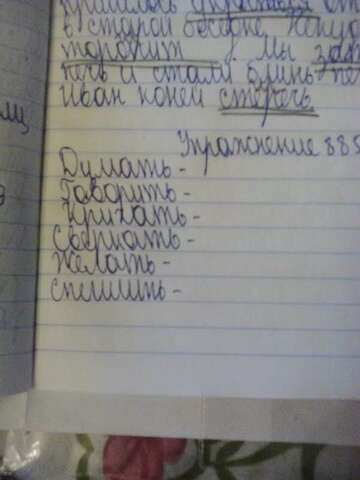 в старой беседке.
торопит мы
печь и стали блины пе
Иван коней стеречь
Упражнение 885
Думать-
Говорить-
Кричать-
Сверкать-
Желать-
спешить-